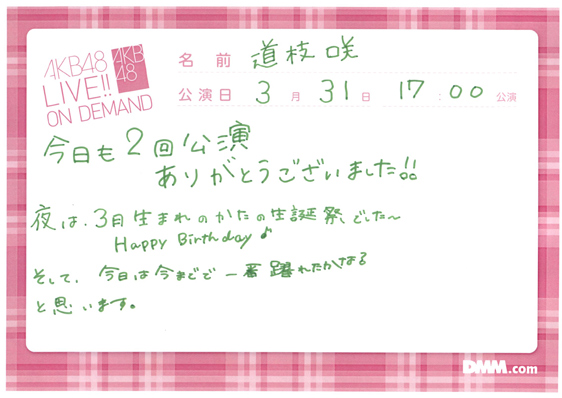 AKB48
LIVE!!
ON DEMAND
AKB
48
名 前 道枝 咲
公演日 3 月 31 日 17 : 00 公演
今日も2回公演
ありがとうございました!!
夜は、3月生まれのかたの生誕祭でした〜
Happy Birthday♪
そして、今日は今までで一番踊れたかなる
と思います。
DMM.com